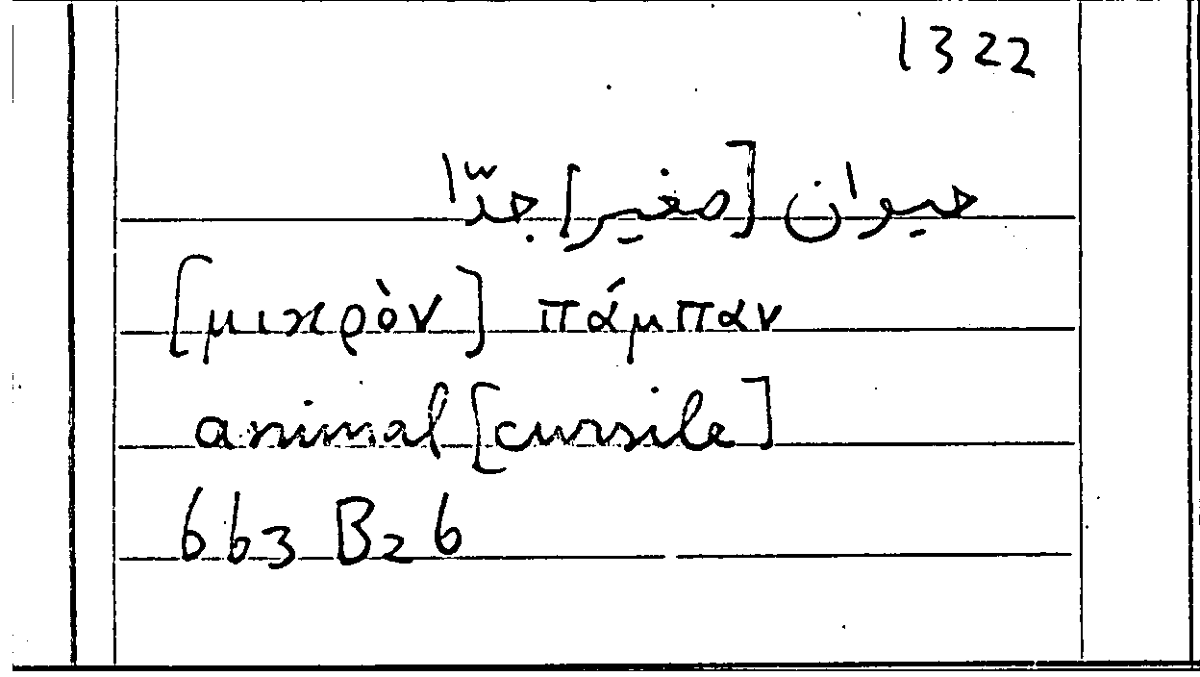 1322
حيوان [صغير] جدّا
[μικρὸν] πάμπαν
animal [cursile]
663 B26